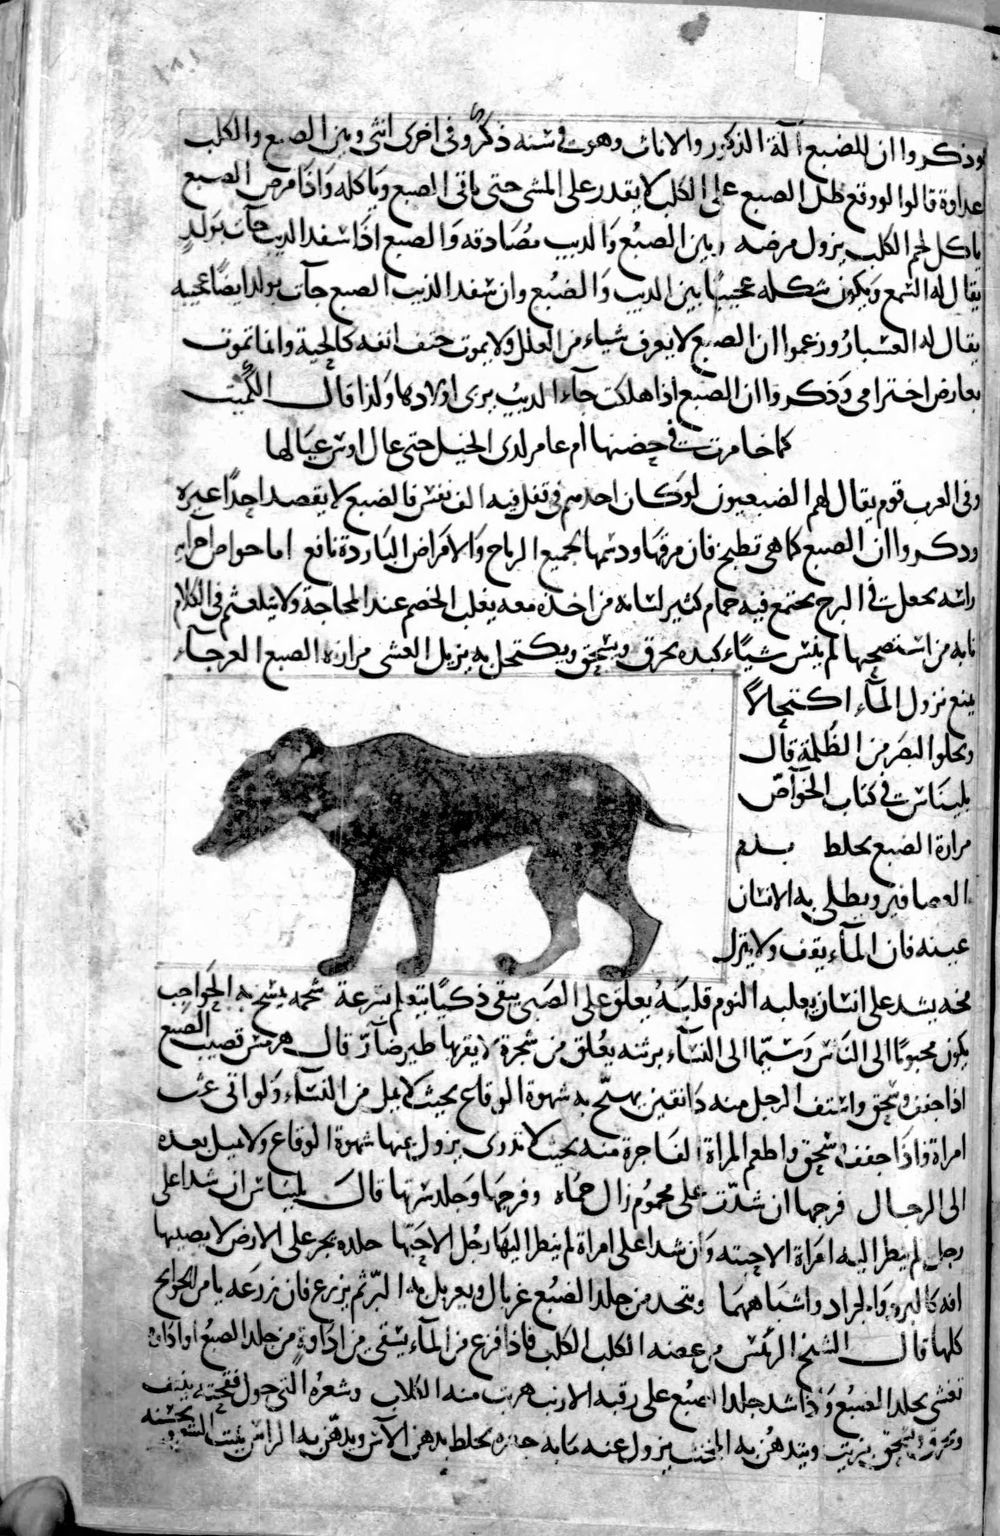 وذكروا ان للضبع آلة الذكور والاناث وهوت في سنه ذكر وفي اخرى انثى وبين الضبع والكلب
عداوة قالوا لو وقع ظل الضبع على الكلب لا يقدر على المشى حتى ياتى الضبع وياكله واذا مرض الضبع
ياكل لحم الكلب يزول مرضه وبين الضبع والذيب مصادقه والضبع اذا سفد الذيب جات بولد
يقال له السمع ويكون شكله عجيبا بين الذيب والضبع وان سفد الذيب الضبع جآت بولد ايضا عجيبه
يقال له العسبار وزعموا ان الضبع لا يعرف شياء من العلل ولا يموت حتف انفه كالحية وانما تموت
بعارض اخترامى وذكروا ان الضبع اذا هلكت جآء الذيب يربى اولادها ولذا قال الكميت
كما خامرت في حضنها ام عامر لدى الحبل حتى عال اوس عيالها
وفى العرب قوم يقال لهم الضبعيون لو كان احدهم فى قفل فيه الف نفس فالضبع لا يقصد احدا غيره
وذكروا ان الضبع كما هى تطبخ فان مرقها ودسمها لجميع الرياح والامراض الباردة نافع اما خواص اجزايه
راسه يجعل في البرج يجتمع فيه حمام كثير لسانه من اخذه معه يغلب الخصم عند المحاجة ولا يتلعثم فى الكلام
نابه من استصحبها لم ينس شيئاء كبده يحرق ويسحق ويكتحل به يزيل العشى مرارة الضبع العرجآء
يمنع نزول المآء اكتحالا
ويجلوا البصر من الظلمة قال
بليناس في كتاب الخوآص
مرارة الضبع يخلط بدم
العصافير ويطلى به الانسان
عينه فان المآء يقف ولا ينزل
مخه يشد على انسان يغلبه النوم قلبه يعلق على الصبى يبقى ذكيا يتعلم بسرعة شحمه يمسح به الحواجب
يكون محبوبا الى الناس وسيما الى النسآء برثنه يعلق من شجرة لا يقربها طير ضآر قال هرمس قضيب الضبع
اذا جفف وسحق واستف الرجل منه دانقين يهيج به شهوة الوقاع بحيث لا يمل من النسآء ولو اتى عشر
امراة واذا جفف وسحق واطعم المراة الفاجرة منه بحيث لا تدرى يزول عنها شهوة الوقاع ولا تميل بعده
الى الرجال فرجها ان شدت على محموم زال حماه وفرجها وجلد سرتها قال بليناس ان شدا على
رجل لم ينظر اليه امراة الا حبته وان شدا على امراة لم ينظر اليها رجل الا حبها جلده يجر على الارض لا يصيبها
افه كالبرد والجراد واشباههما ويتخد من جلد الضبع غربال ويغربل به البر ثم يزرع فان زرعه يامن الجوايح
كلها قال الشيخ الرئس من عضه الكلب الكلب فاذا فزع من المآء يسقى من اداوة من جلد الضبع او اداوه
تغشى بجلد الضبع واذا شد جلد الضبع على رقبه الارنب هربت منه الكلاب وشعره التى حول فقحته ينتف
وتحرق ويسحق بزيت ويتدهن به المخنث يزول عنه ما به يخلط بدهن الآس ويدهن به الراس ينبت الشعر ويحسنه